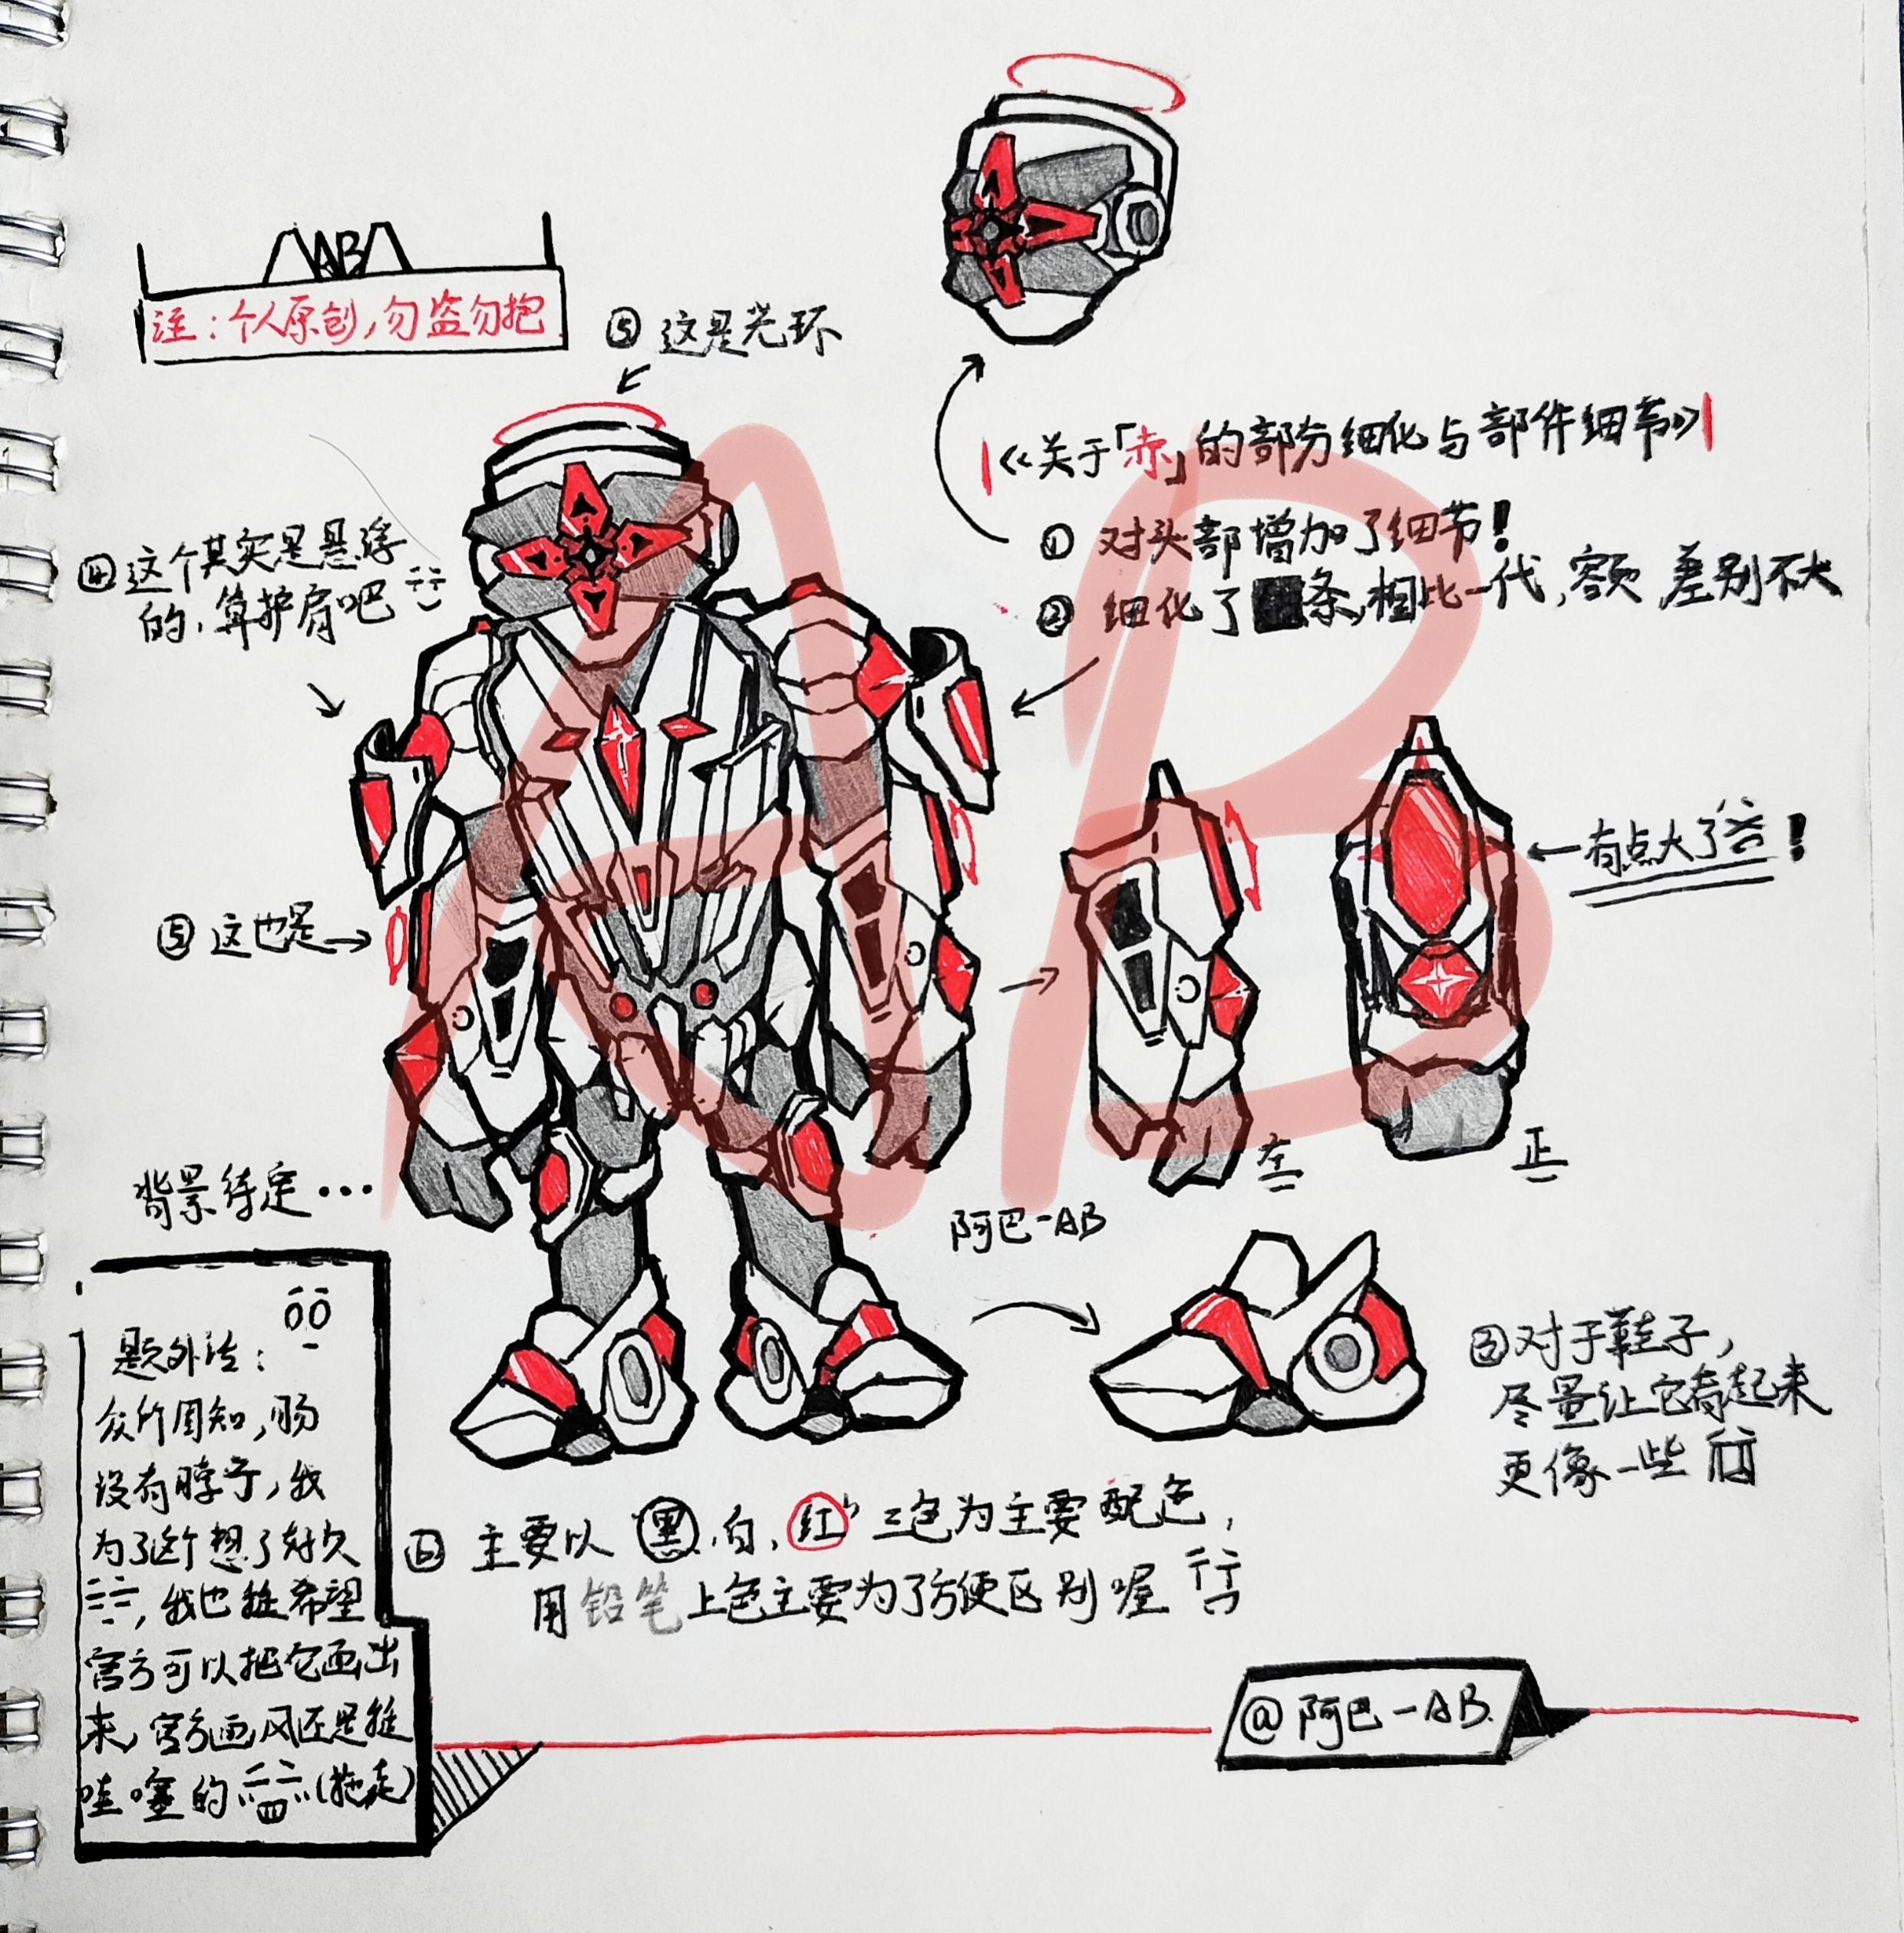 AB
注：个人原创，勿盗勿抱
⑤ 这是光环
|《关于「赤」的部分细化与部件细节》|
① 对头部增加了细节！
② 细化了条，相比一代，额，差别不大
④ 这个其实是悬浮
的，算护肩吧
←有点大了！
⑤ 这也是→
左
正
背景待定…
阿巴-AB
③ 对于鞋子，
尽量让它看起来
更像一些
题外话：
众所周知，肠
没有脖子，我
为了这个想了好久
，我也挺希望
官方可以把它画出
来，官方画风还是挺
哇塞的（拖走）
⑥ 主要以“黑，白，红”三色为主要配色，
用铅笔上色主要为了方便区别喔
@阿巴-AB.
AB